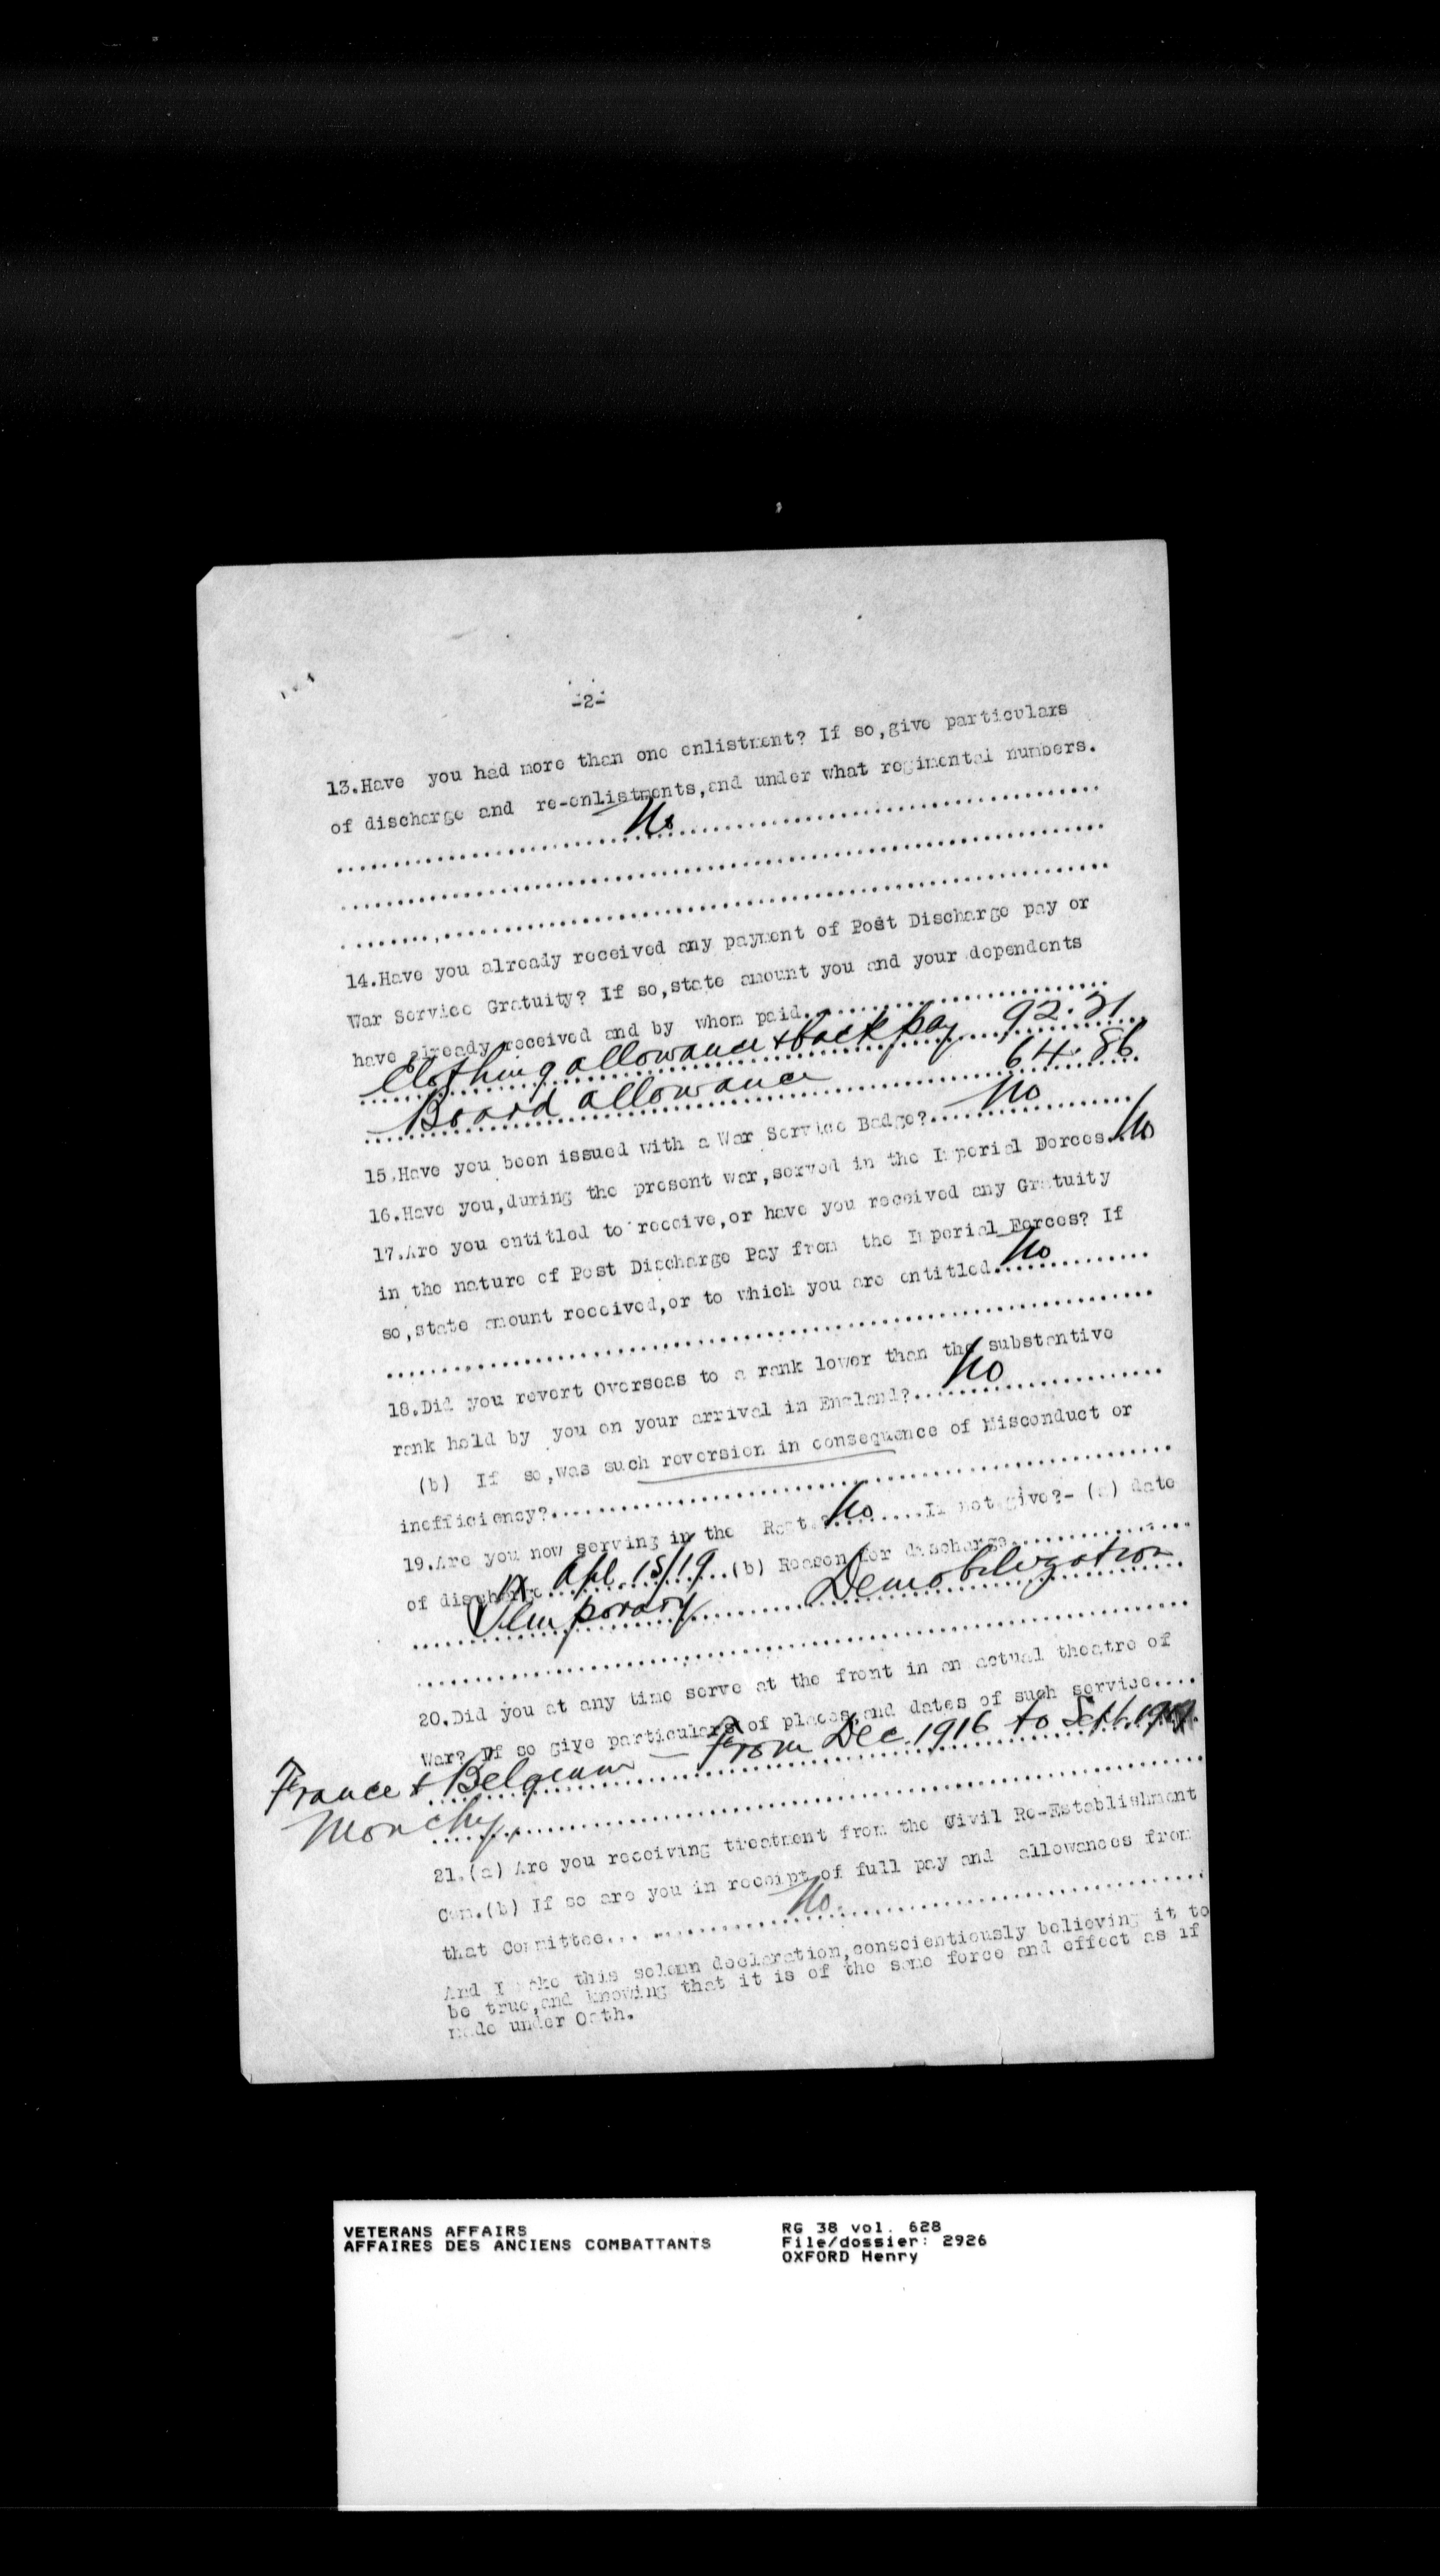 -2-
13.Have you had more than one enlistment? If so,give particulars
of discharge and re-enlistments,and under what regimental numbers.
No
14.Have you already received any payment of Post Discharge pay or
War Service Gratuity? If so,state amount you and your dependents
have already received and by whom paid.
Clothing allowance & back pay 92.21
Board allowance 64.86
15.Have you been issued with a War Service Badge? No
16.Have you,during the present war,served in the Imperial Forces. No
17.Are you entitled to receive,or have you received any Gratuity
in the nature of Post Discharge Pay from the Imperial Forces? If
so,state amount received,or to which you are entitled. No
18.Did you revert Overseas to a rank lower than the substantive
rank held by you on your arrival in England? No
(b) If so,was such reversion in consequence of Misconduct or
inefficiency?
19.Are you now serving in the Regt.? No If not give?-(a) date
of discharge Apl 15/19 (b) Reason for discharge
Temporary Demobilization
20.Did you at any time serve at the front in an actual theatre of
War? If so give particulars of places,and dates of such service....
France & Belgium — From Dec. 1916 to Sept.
Monchy.
21.(a) Are you receiving treatment from the Civil Re-Establishment
Com.(b) If so are you in receipt of full pay and allowances from
that Committee... No.
And I make this solemn declaration,conscientiously believing it to
be true,and knowing that it is of the same force and effect as if
made under Oath.
VETERANS AFFAIRS
AFFAIRES DES ANCIENS COMBATTANTS
RG 38 vol. 628
File/dossier: 2926
OXFORD Henry